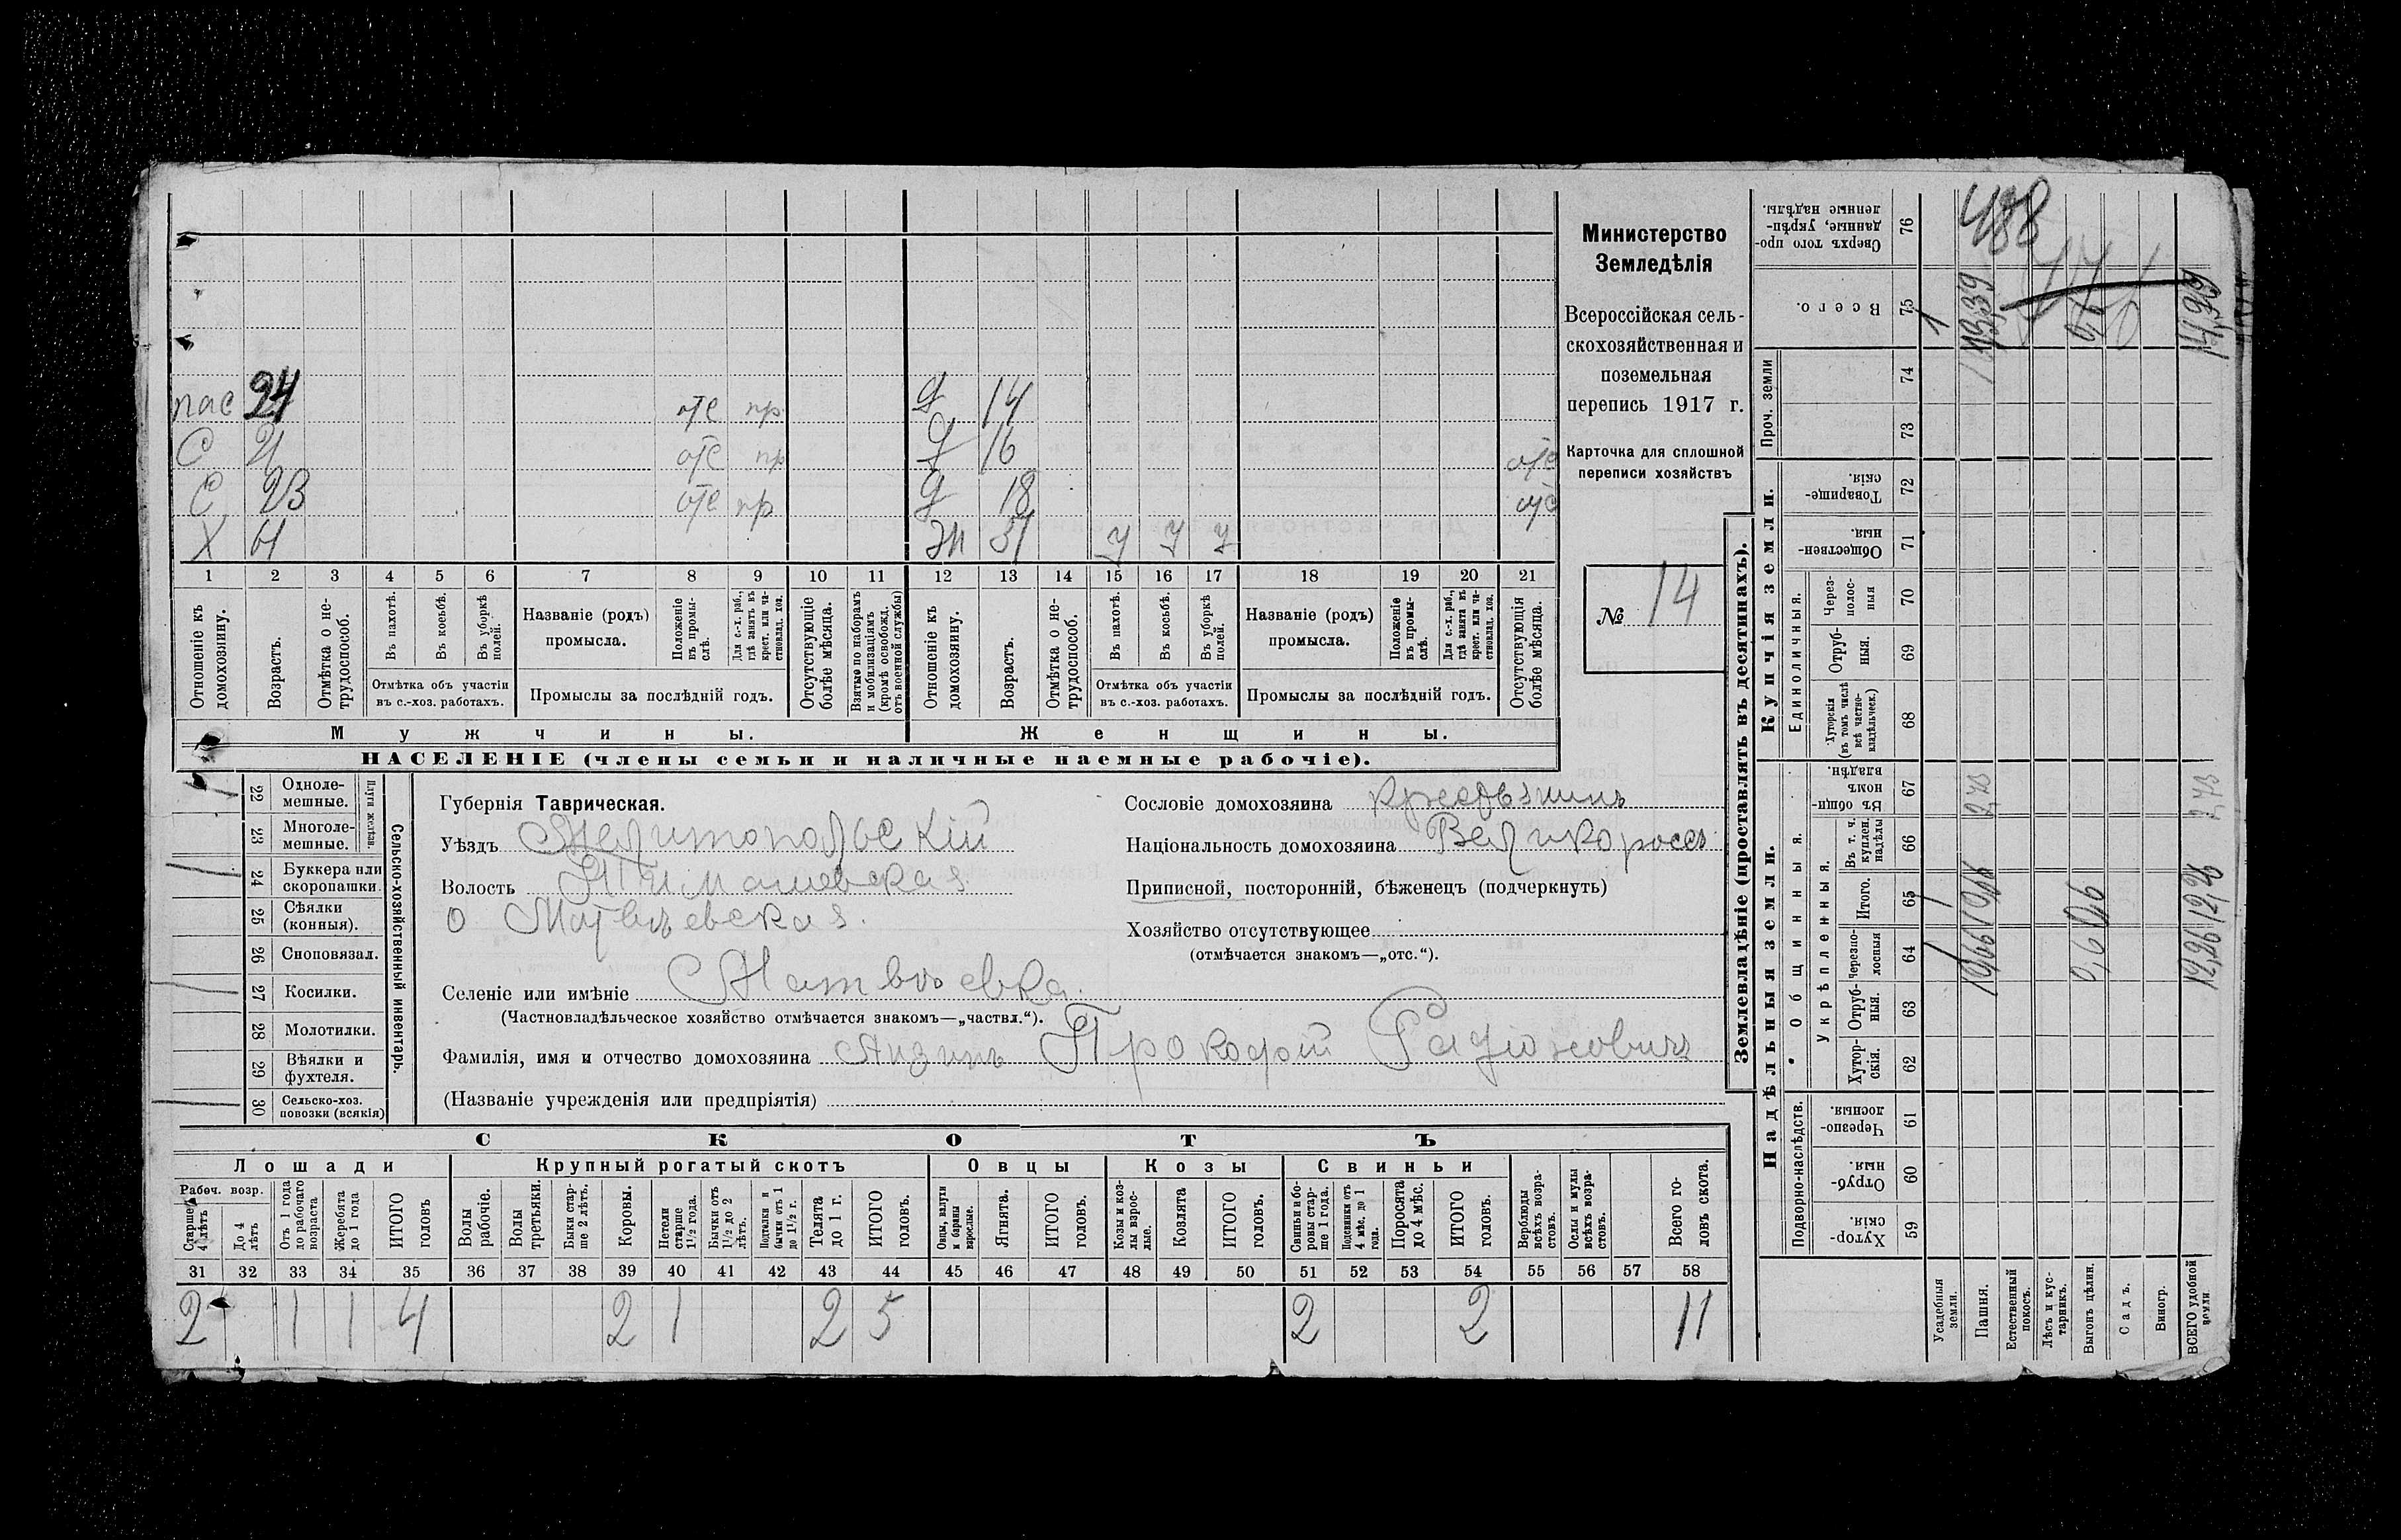 Министерство
Земледѣлія
Всероссійская сель-
скохозяйственная и
поземельная
перепись 1917 г.
Карточка для сплошной
переписи хозяйствъ
№ 14
пас 24 отс пр д 14
С 21 отс пр д 16 отс
С 23 отс пр д 18 отс
Х жн у у у
1 2 3 4 5 6 7 8 9 10 11 12 13 14 15 16 17 18 19 20 21
Отношеніе къ домохозяину.
Возрастъ.
Отмѣтка о не-трудоспособ.
Въ пахотѣ.
Въ косьбѣ.
Въ уборкѣ полей.
Отмѣтка объ участіи
въ с.-хоз. работахъ.
Названіе (родъ)
промысла.
Положеніе въ промы-слѣ.
Для с.-х. раб., гдѣ занятъ въ крест. или ча-стновлад. хоз.
Промыслы за послѣдній годъ.
Отсутствующіе болѣе мѣсяца.
Взятые по наборамъ и мобилизаціямъ (кромѣ освобожд. отъ военной службы)
Отношеніе къ домохозяину.
Возрастъ.
Отмѣтка о не-трудоспособ.
Въ пахотѣ.
Въ косьбѣ.
Въ уборкѣ полей.
Отмѣтка объ участіи
въ с.-хоз. работахъ.
Названіе (родъ)
промысла.
Положеніе въ промы-слѣ.
Для с.-х. раб., гдѣ занята въ крест. или ча-стновлад. хоз.
Промыслы за послѣдній годъ.
Отсутствующія болѣе мѣсяца.
Мужчины.
Женщины.
НАСЕЛЕНІЕ (члены семьи и наличные наемные рабочіе).
Сельско-хозяйственный инвентарь.
Плуги желѣзн.
22 Одноле-мешные.
23 Многоле-мешные.
24 Буккера или скоропашки.
25 Сѣялки (конныя).
26 Сноповязал.
27 Косилки.
28 Молотилки.
29 Вѣялки и фухтеля.
30 Сельско-хоз. повозки (всякія)
Губернія Таврическая.
Уѣздъ Мелитопольскій
Волость Тимашевская
о Матвѣевская.
Селеніе или имѣніе Матвѣевка.
(Частновладѣльческое хозяйство отмѣчается знакомъ—„частвл.“).
Фамилія, имя и отчество домохозяина Прокофій Радіоновичъ
(Названіе учрежденія или предпріятія)
Сословіе домохозяина крестьянинъ
Національность домохозяина Великороссъ
Приписной, посторонній, бѣженецъ (подчеркнуть)
Хозяйство отсутствующее
(отмѣчается знакомъ—„отс.“).
СКОТЪ
Лошади
Крупный рогатый скотъ
Овцы
Козы
Свиньи
Рабоч. возр.
Старше 4 лѣтъ
До 4 лѣтъ
Отъ 1 года до рабочаго возраста
Жеребята до 1 года
ИТОГО головъ
Волы рабочіе.
Волы третьяки.
Быки стар-ше 2 лѣтъ.
Коровы.
Нетели старше 1½ года.
Бычки отъ 1½ до 2 лѣтъ.
Подтелки и бычки отъ 1 до 1½ г.
Телята до 1 г.
ИТОГО головъ.
Овцы, валухи и бараны взрослые.
Ягнята.
ИТОГО головъ.
Козы и коз-лы взрос-лые.
Козлята
ИТОГО головъ.
Свиньи и бо-ровы стар-ше 1 года.
Подсвинки отъ 4 мѣс. до 1 года.
Поросята до 4 мѣс.
ИТОГО головъ.
Верблюды всѣхъ возра-стовъ.
Ослы и мулы всѣхъ возра-стовъ.
Всего го-ловъ скота.
31 32 33 34 35 36 37 38 39 40 41 42 43 44 45 46 47 48 49 50 51 52 53 54 55 56 57 58
2 1 1 4 2 1 2 5 2 2 11
Землевладѣніе (проставлять въ десятинахъ).
Надѣльныя земли.
Купчія земли.
Проч. земли
Подворно-наслѣдств.
Общинныя.
Укрѣпленныя.
Единоличныя.
59 Хутор-скія.
60 Отруб-ныя.
61 Черезпо-лосныя.
62 Хутор-скія.
63 Отруб-ныя.
64 Черезпо-лосныя
65 Итого.
66 Въ т. ч. куплен. надѣлы
67 Въ общи-номъ владѣн.
68 Хуторскія (въ томъ числѣ всѣ частно-владѣльческ.)
69 Отруб-ныя.
70 Через-полос-ныя
71 Обществен-ныя.
72 Товарище-скія.
73
74
75 Всего.
76 Сверхъ того про-данные, укрѣп-ленные надѣлы.
Усадебныя земли.
Пашня.
Естественный покосъ.
Лѣсъ и кус-тарникъ.
Выгонъ цѣлин.
Садъ.
Виногр.
ВСЕГО удобной земли
488
1
13,39
0,6
14,99
2,73
0,6
12,26
2,73